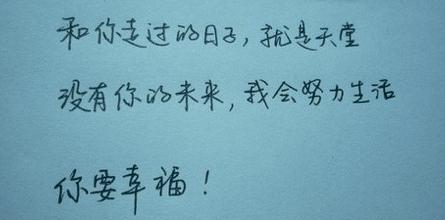 和你走过的日子,就是天堂
没有你的未来,我会努力生活
你要幸福!